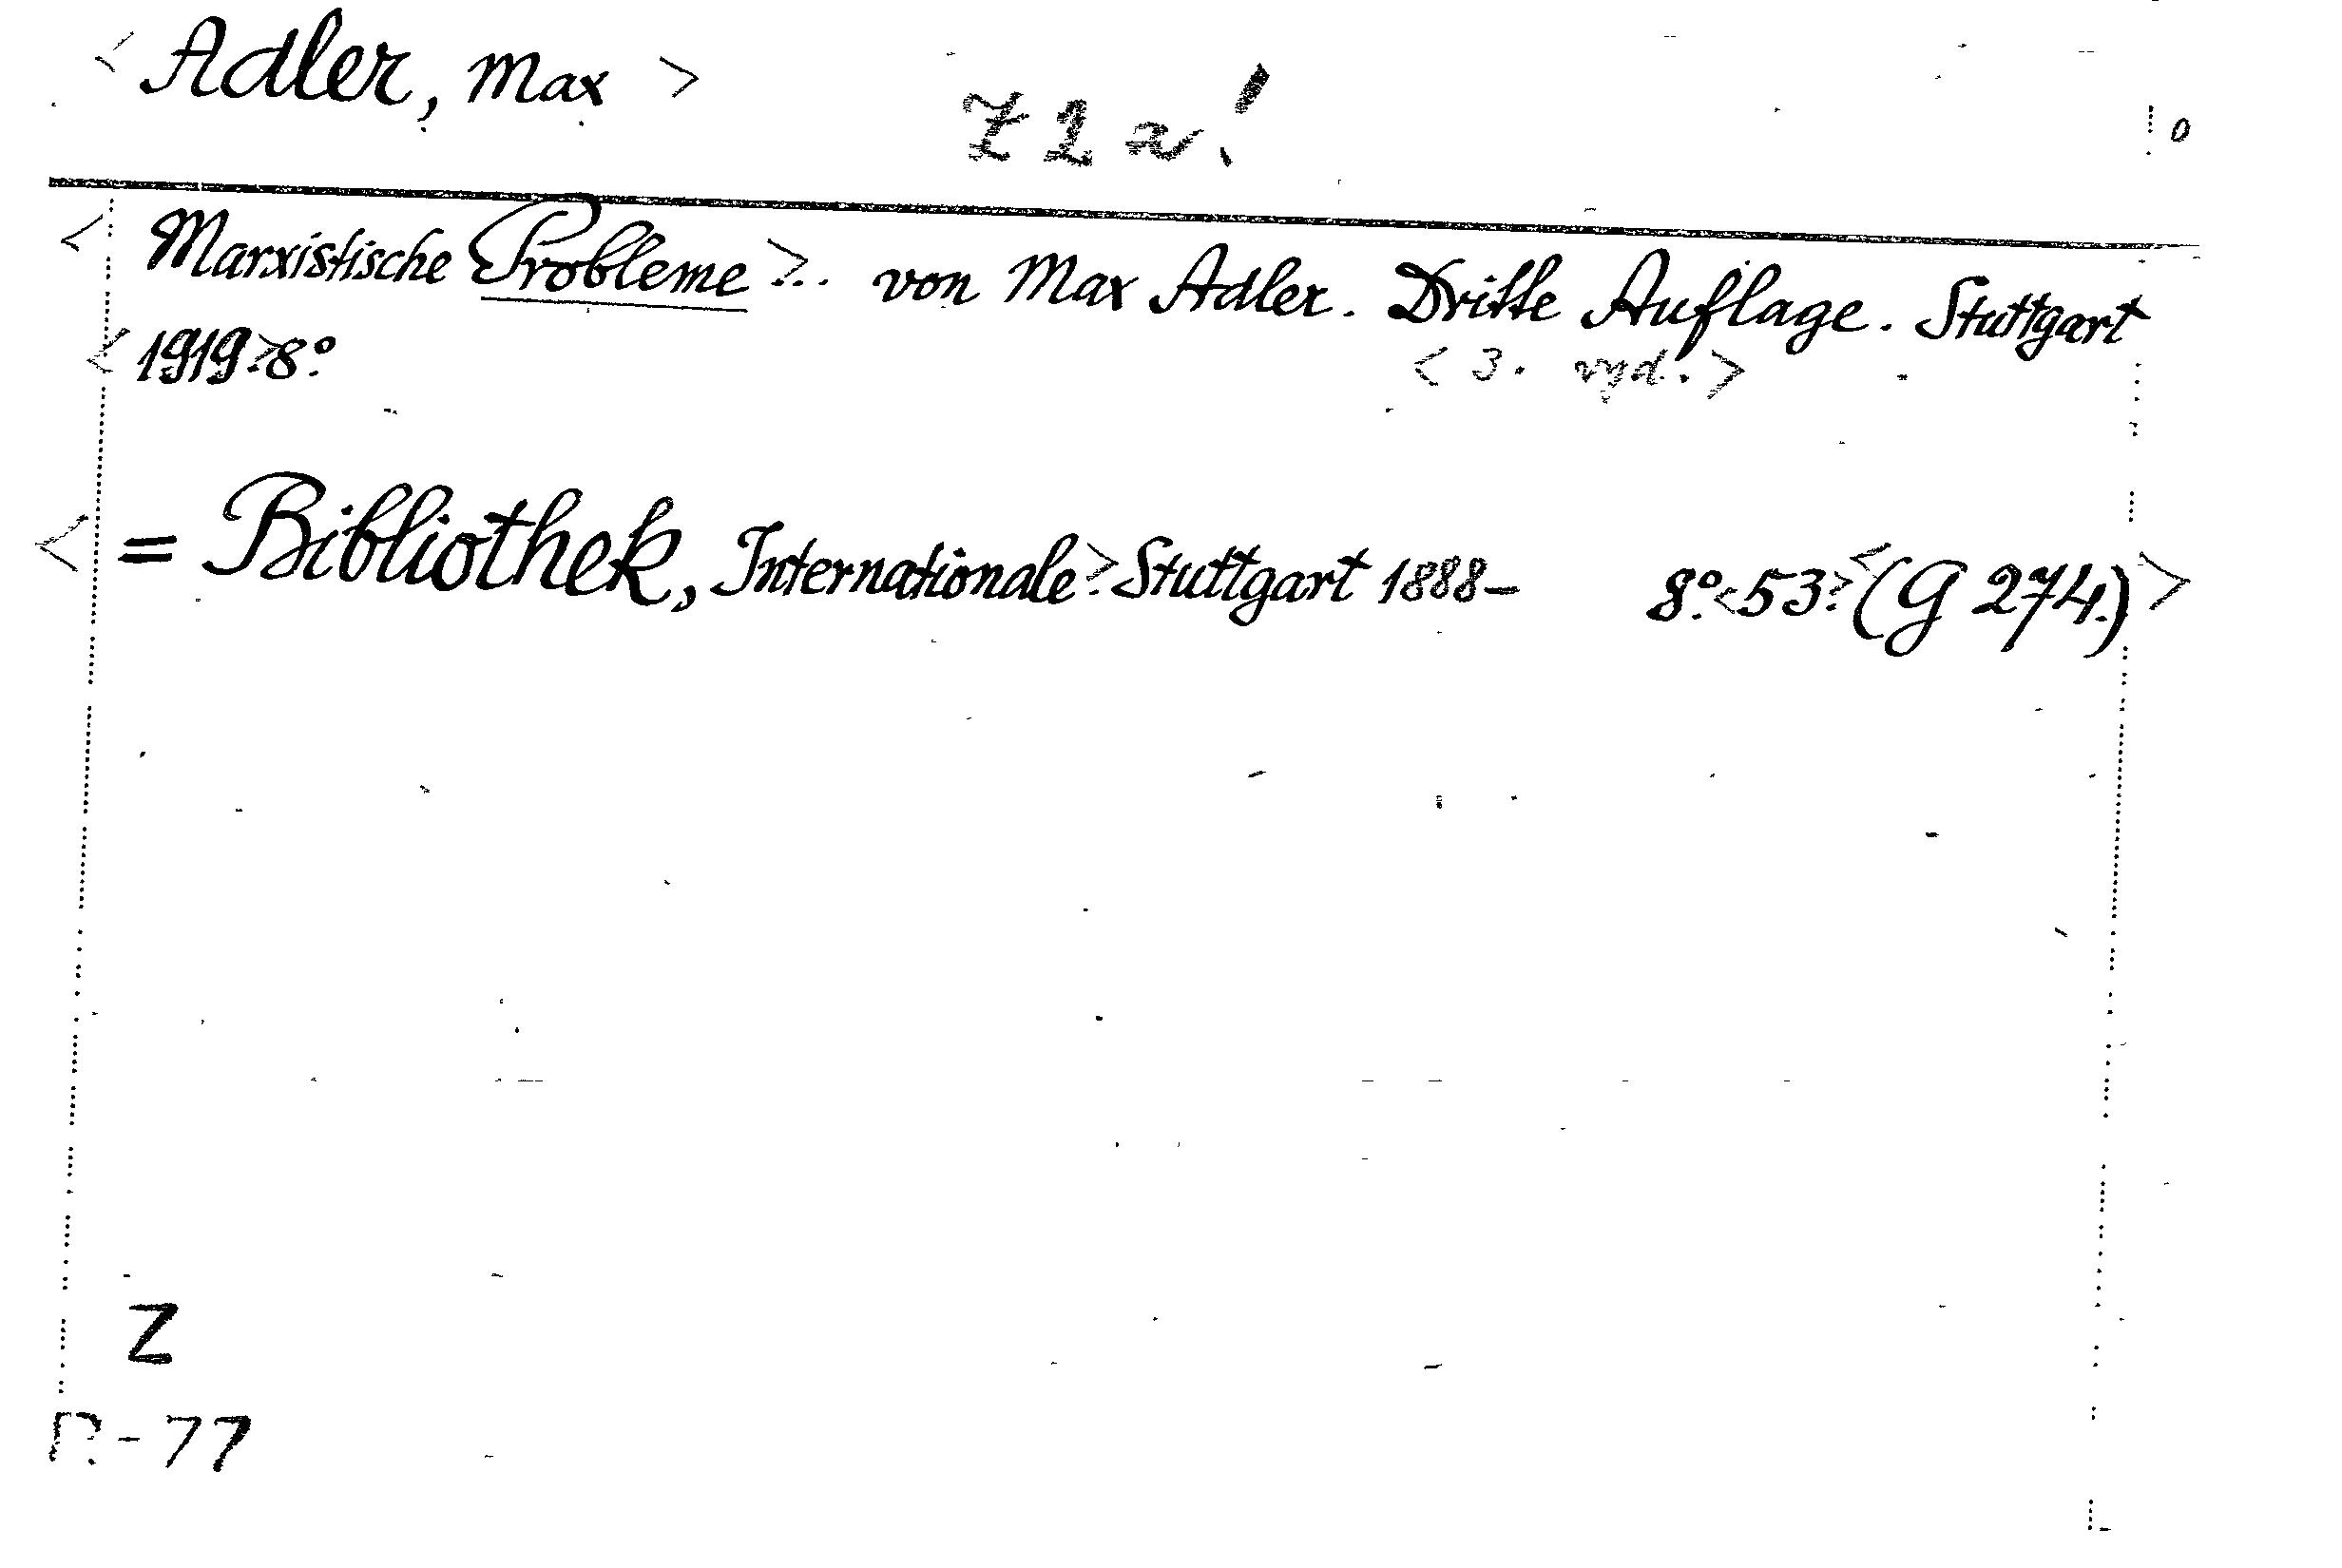 < Adler, Max >
Z 2 a!
< Marxistische Probleme >.. von Max Adler. Dritte Auflage. Stuttgart
< 1919 > 8°.
< 3. vyd. >
< = Bibliothek, Internationale >. Stuttgart 1888– 8°. < 53. > < (G 274.) >
Z
-77